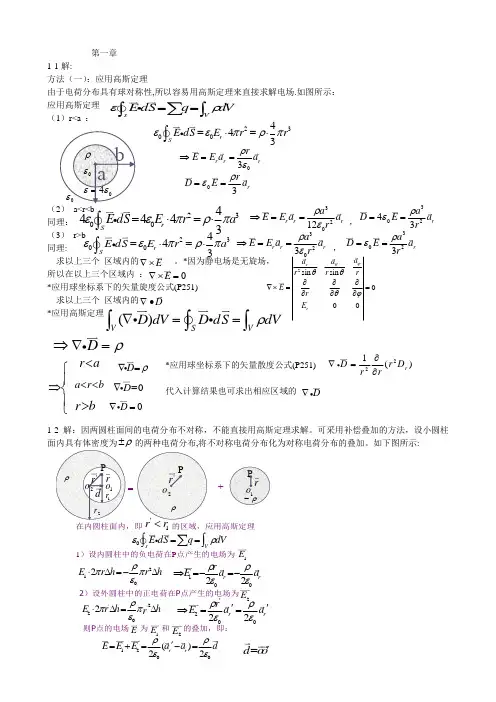 第一章
1-1 解:
方法（一）：应用高斯定理
由于电荷分布具有球对称性,所以容易用高斯定理来直接求解电场.如图所示:
应用高斯定理 ε∮ₛE•dS=∑q=∫ᵥρdV
（1）r<a ：
ε₀∮_S E•dS=ε₀E_r·4πr²=ρ·4/3 πr³
⇒ E=E_r a_r=ρr/3ε₀ a_r
D=ε₀E=ρr/3 a_r
a b
ρ
ε₀
ε=4ε₀
ε₀
（2） a<r<b
同理： 4ε₀∮_S E•dS=4ε₀E_r·4πr²=ρ·4/3 πa³ ⇒E=E_r a_r=ρa³/12ε₀r² a_r ， D=4ε₀E=ρa³/3r² a_r
（3） r>b
同理: ε₀∮_S E•dS=ε₀E_r·4πr²=ρ·4/3 πa³ ⇒E=E_r a_r=ρa³/3ε₀r² a_r ， D=ε₀E=ρa³/3r² a_r
求以上三个 区域内的∇×E 。*因为静电场是无旋场，
所以在以上三个区域内：∇×E=0
*应用球坐标系下的矢量旋度公式(P251)
∇×E= | a_r/r²sinθ a_θ/rsinθ a_φ/r | ∂/∂r ∂/∂θ ∂/∂φ | E_r 0 0 | =0
求以上三个 区域内的∇•D
*应用高斯定理 ∫_V(∇•D)dV=∮_S D•dS=∫_V ρdV
⇒∇•D=ρ
⇒{ r<a ∇•D=ρ
a<r<b ∇•D=0
r>b ∇•D=0
*应用球坐标系下的矢量散度公式(P251) ∇•D=1/r² ∂/∂r(r²D_r)
代入计算结果也可求出相应区域的 ∇•D
1-2 解：因两圆柱面间的电荷分布不对称，不能直接用高斯定理求解。可采用补偿叠加的方法，设小圆柱
面内具有体密度为±ρ 的两种电荷分布,将不对称电荷分布化为对称电荷分布的叠加。如下图所示:
ρ P r′ r o₂ o₁ d r₁ r₂ = P r′ o₂ ρ + P r o₁ −ρ
在内圆柱面内，即 r′<r₁ 的区域，应用高斯定理
ε₀∮ₛE•dS=∑q=∫ᵥρdV
1）设内圆柱中的负电荷在P点产生的电场为 E₁
E₁·2πrΔh=−ρ/ε₀ πr²Δh ⇒E₁=−ρr/2ε₀ a_r=−ρ/2ε₀ a_r
2）设外圆柱中的正电荷在P点产生的电场为E₂
E₂·2πr′Δh=ρ/ε₀ πr′²Δh ⇒E₂=ρr′/2ε₀ a_r′=ρ/2ε₀ a_r′
则P点的电场 E 为 E₁ 和 E₂ 的叠加，即：
E=E₁+E₂=ρ/2ε₀(a_r′−a_r)=ρ/2ε₀ d d=oo′